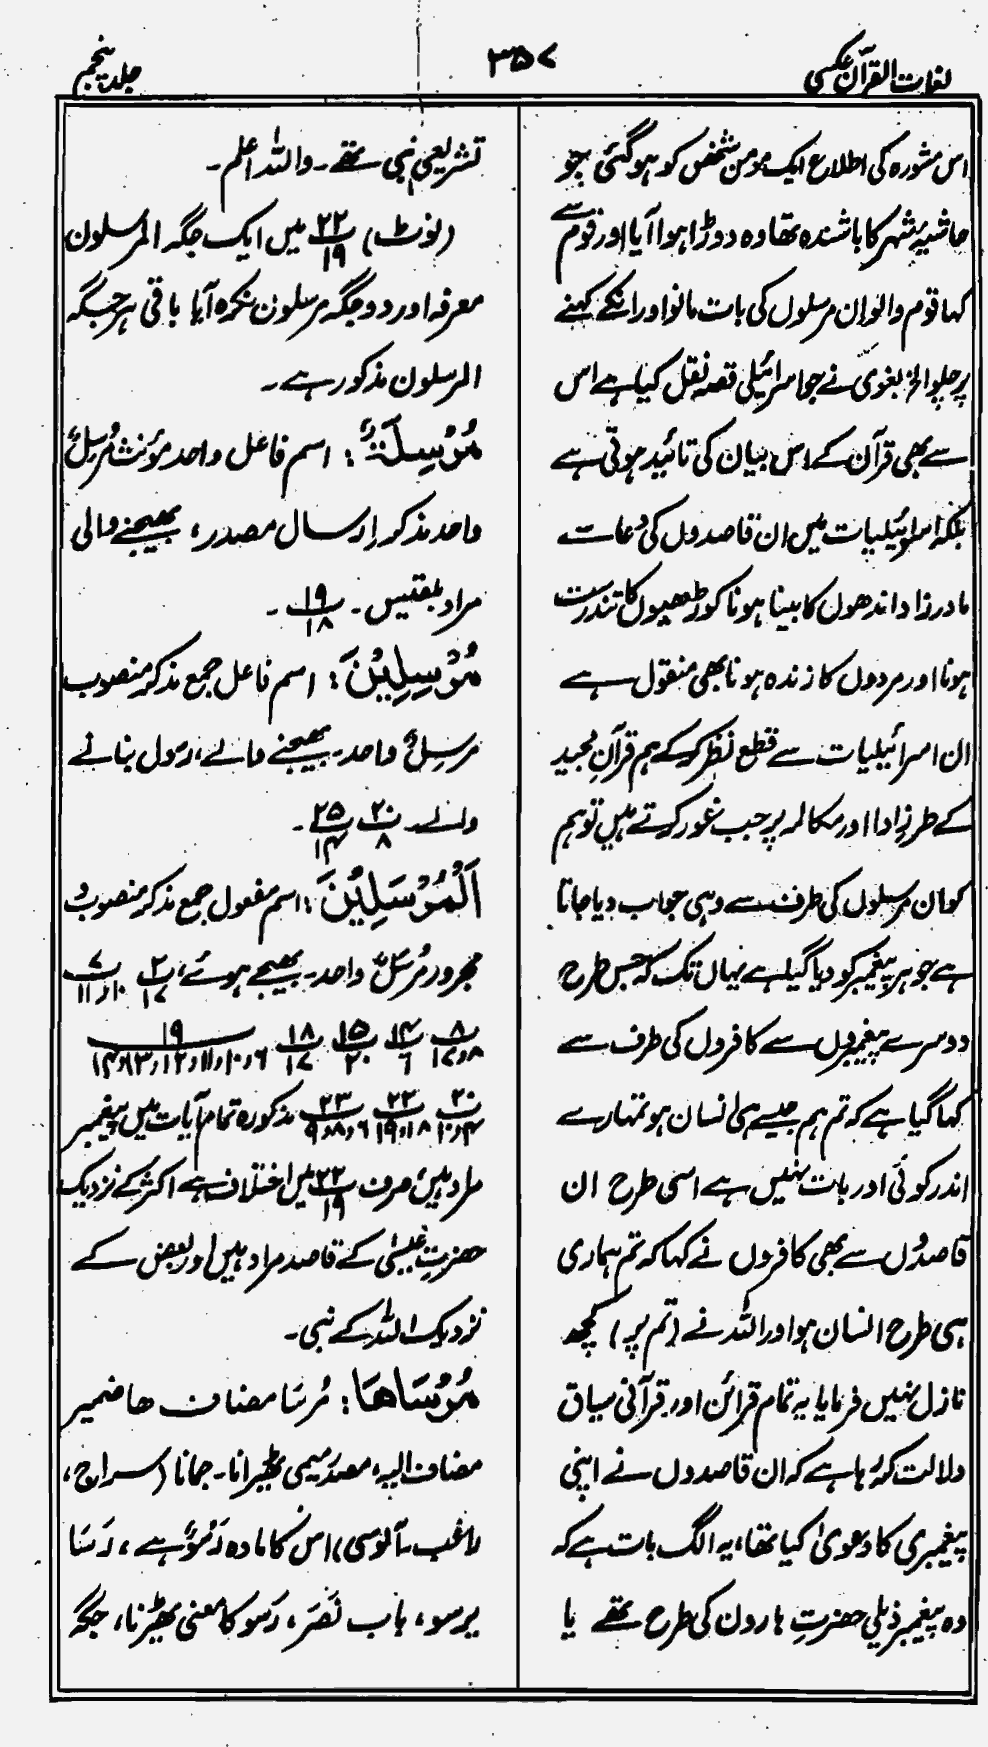 لغات القرآن عکسی
۳۵۷
جلد پنجم
اس مشورہ کی اطلاع ایک مومن شخص کو ہوگئی جو
حاشیۂ شہر کا باشندہ تھا وہ دوڑا ہوا آیا اور قوم سے
کہا قوم والو ان مرسلوں کی بات مانو اور انکے کہنے
پر چلو الخ بغوی نے جو اسرائیلی قصہ نقل کیا ہے اس
سے بھی قرآن کے اس بیان کی تائید ہوتی ہے
بلکہ اسرائیلیات میں ان قاصدوں کی دعا سے
مادر زاد اندھوں کا بینا ہونا کوڑھیوں کا تندرست
ہونا اور مردوں کا زندہ ہونا بھی منقول ہے
ان اسرائیلیات سے قطع نظر کرکے ہم قرآنِ مجید
کے طرزِ ادا اور مکالمہ پر جب غور کرتے ہیں تو ہم
کو ان مرسلوں کی طرف سے وہی جواب دیا جاتا
ہے جو ہر پیغمبر کو دیا گیا ہے یہاں تک کہ جس طرح
دوسرے پیغمبروں سے کافروں کی طرف سے
کہا گیا ہے کہ تم ہم جیسے ہی انسان ہو تمہارے
اندر کوئی اور بات نہیں ہے اسی طرح ان
قاصدوں سے بھی کافروں نے کہا کہ تم ہماری
ہی طرح انسان ہو اور اللہ نے (تم پر) کچھ
نازل نہیں فرمایا یہ تمام قرائن اور قرآنی سیاق
دلالت کر رہا ہے کہ ان قاصدوں نے اپنی
پیغمبری کا دعویٰ کیا تھا، یہ الگ بات ہے کہ
وہ پیغمبر ذیلی حضرتِ ہارون کی طرح تھے یا
تشریعی نبی تھے۔ واللہ اعلم۔
(نوٹ) ۲۲/۱۹ میں ایک جگہ المرسلون
معرفہ اور دو جگہ مرسلون نکرہ آیا باقی ہر جگہ
المرسلون مذکور ہے۔
مُرْسِلَۃٌ: اسم فاعل واحد مؤنث مُرسِلٌ
واحد مذکر اِرسال مصدر، بھیجنے والی
مراد بلقیس۔ ۱۹/۱۸۔
مُرْسِلِیْنَ: اسم فاعل جمع مذکر منصوب
مرسِلٌ واحد۔ بھیجنے والے، رسول بنانے
والے۔ ۲۰/۸ ۲۵/۱۴۔
اَلْمُرْسَلِیْنَ: اسم مفعول جمع مذکر منصوب و
مجرور مُرسَلٌ واحد۔ بھیجے ہوئے، ۲/۱۷ ۷/۱۰و۱۱
۸/۸و۱۷ ۱۴/۶ ۱۵/۲۰ ۱۸/۱۷ ۱۹/۶و۱۰و۱۱و۱۲و۱۳و۱۴
۲۰/۴و۱۰ ۲۲/۱۸و۱۹ ۲۳/۶و۸و۹ مذکورہ تمام آیات میں پیغمبر
مراد ہیں صرف ۲۲/۱۹ میں اختلاف ہے اکثر کے نزدیک
حضرتِ عیسیٰ کے قاصد مراد ہیں اور بعض کے
نزدیک اللہ کے نبی۔
مُرْسَاھَا: مُرسَا مضاف ھا ضمیر
مضاف الیہ، مصدر میمی ٹھیرانا۔ جمانا (سراج،
راغب، آلوسی) اس کا مادہ رَسْوٌ ہے، رَسَا
یرسو، باب نَصَرَ، رَسو کا معنی ٹھیرنا، جگہ